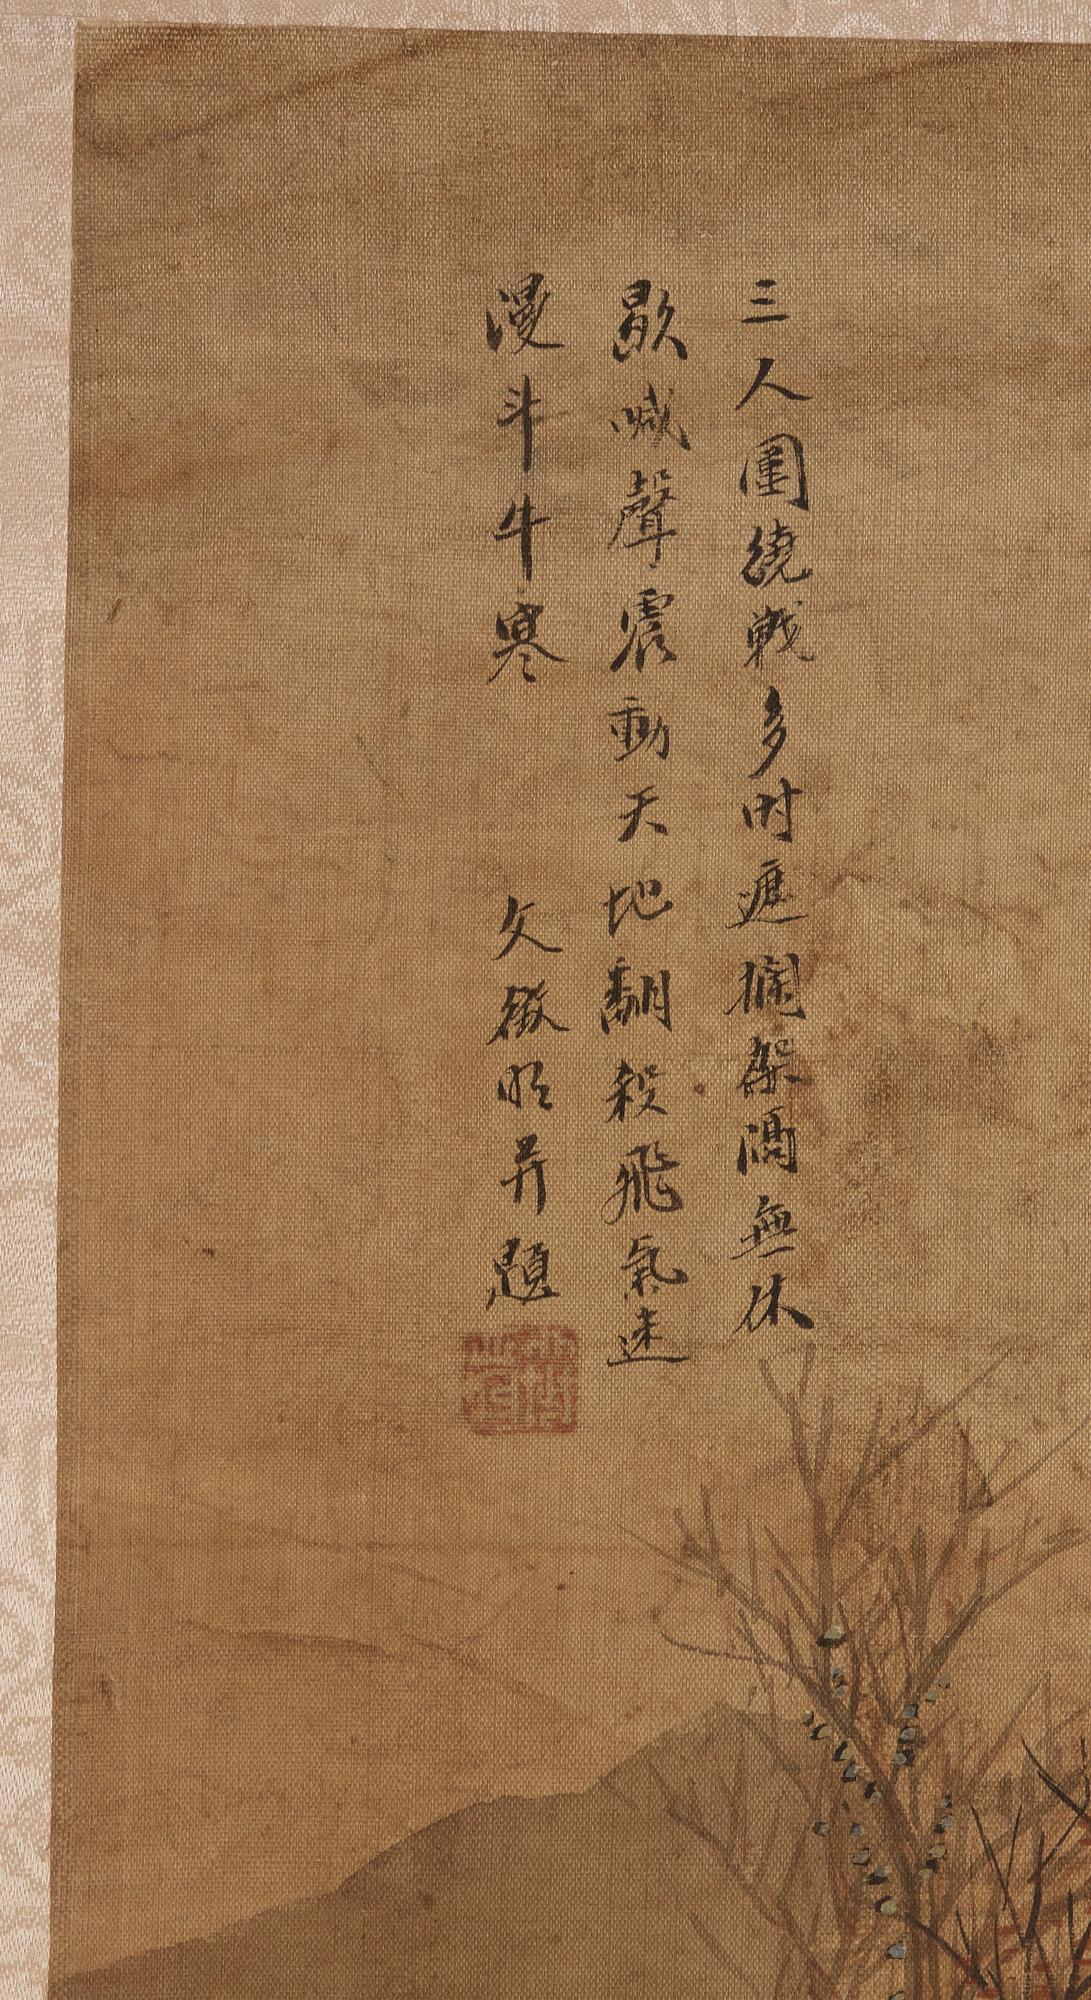 三人圍繞戰多时遮攔架滿無休
歇喊聲震動天地翻殺飛氣迷
漫斗牛寒 文徵明并題